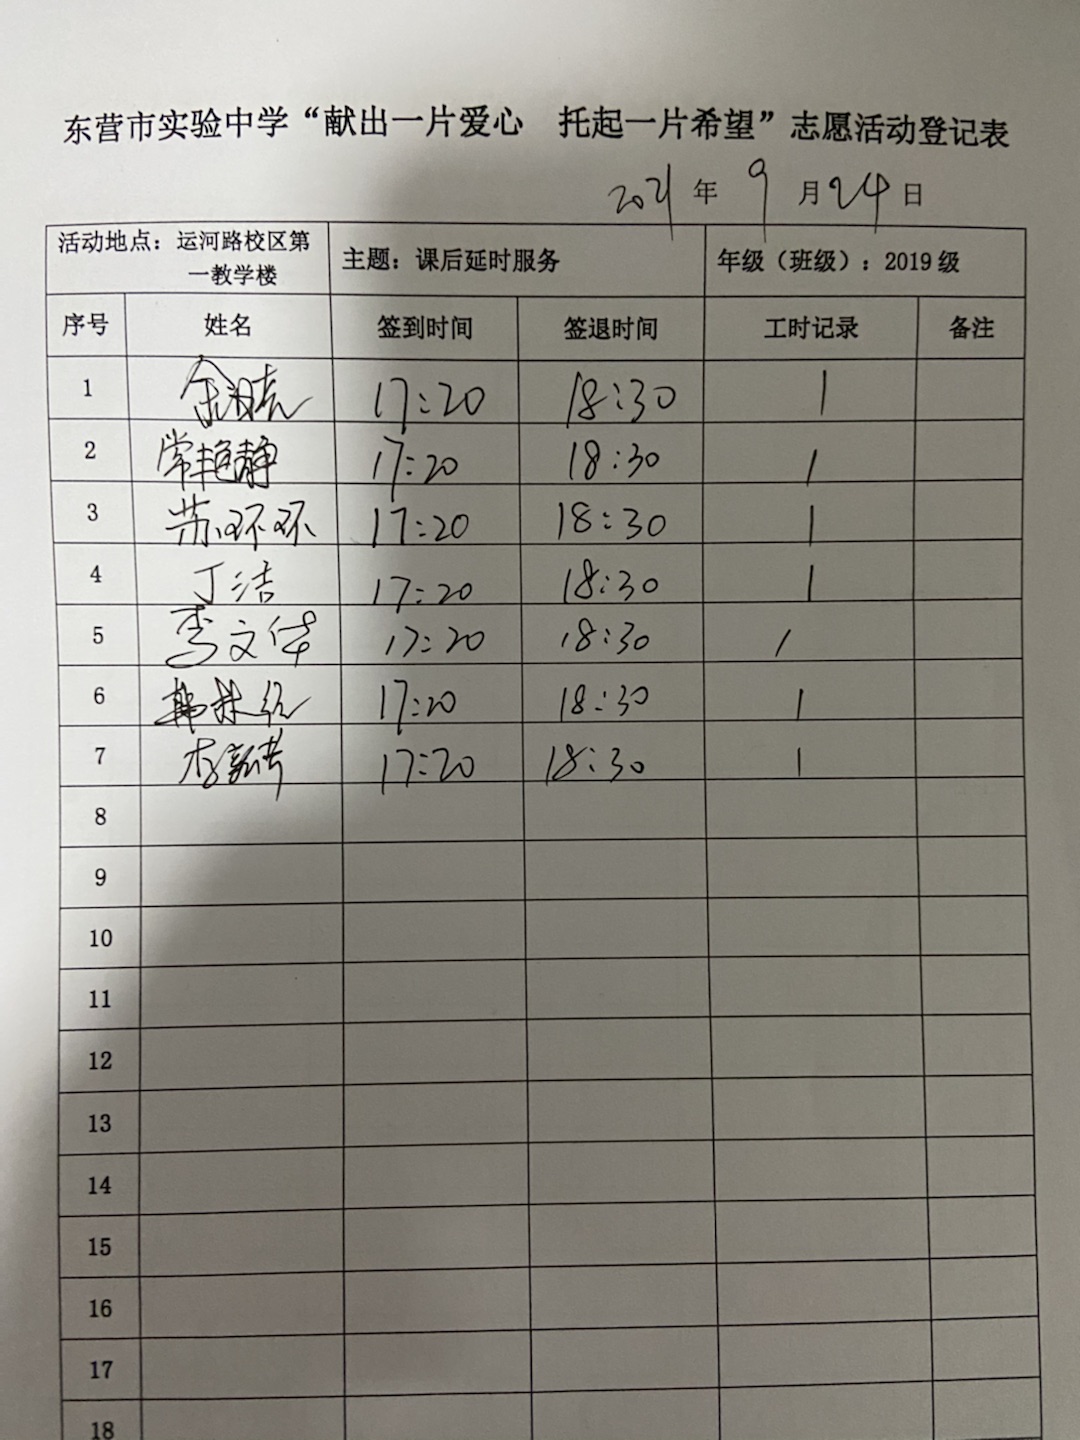 东营市实验中学“献出一片爱心 托起一片希望”志愿活动登记表
2021年 9月24日
活动地点：运河路校区第一教学楼 主题：课后延时服务 年级（班级）：2019级
序号 姓名 签到时间 签退时间 工时记录 备注
1 17:20 18:30 1
2 常艳静 17:20 18:30 1
3 苏环环 17:20 18:30 1
4 丁洁 17:20 18:30 1
5 李文华 17:20 18:30 1
6 韩林 17:20 18:30 1
7 李 17:20 18:30 1
8
9
10
11
12
13
14
15
16
17
18